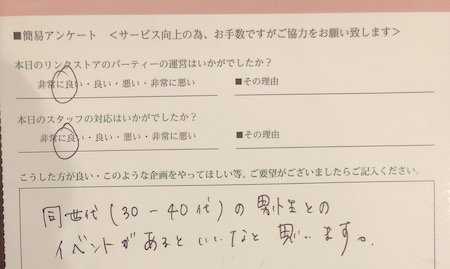 ■簡易アンケート <サービス向上の為、お手数ですがご協力をお願い致します>
本日のリンクストアのパーティーの運営はいかがでしたか?
非常に良い・良い・悪い・非常に悪い ■その理由
本日のスタッフの対応はいかがでしたか?
非常に良い・良い・悪い・悪い ■その理由
こうした方が良い・このような企画をやってほしい等、ご要望がございましたらご記入ください。
同世代(30-40代)の男性との
イベントがあるといいなと思います。